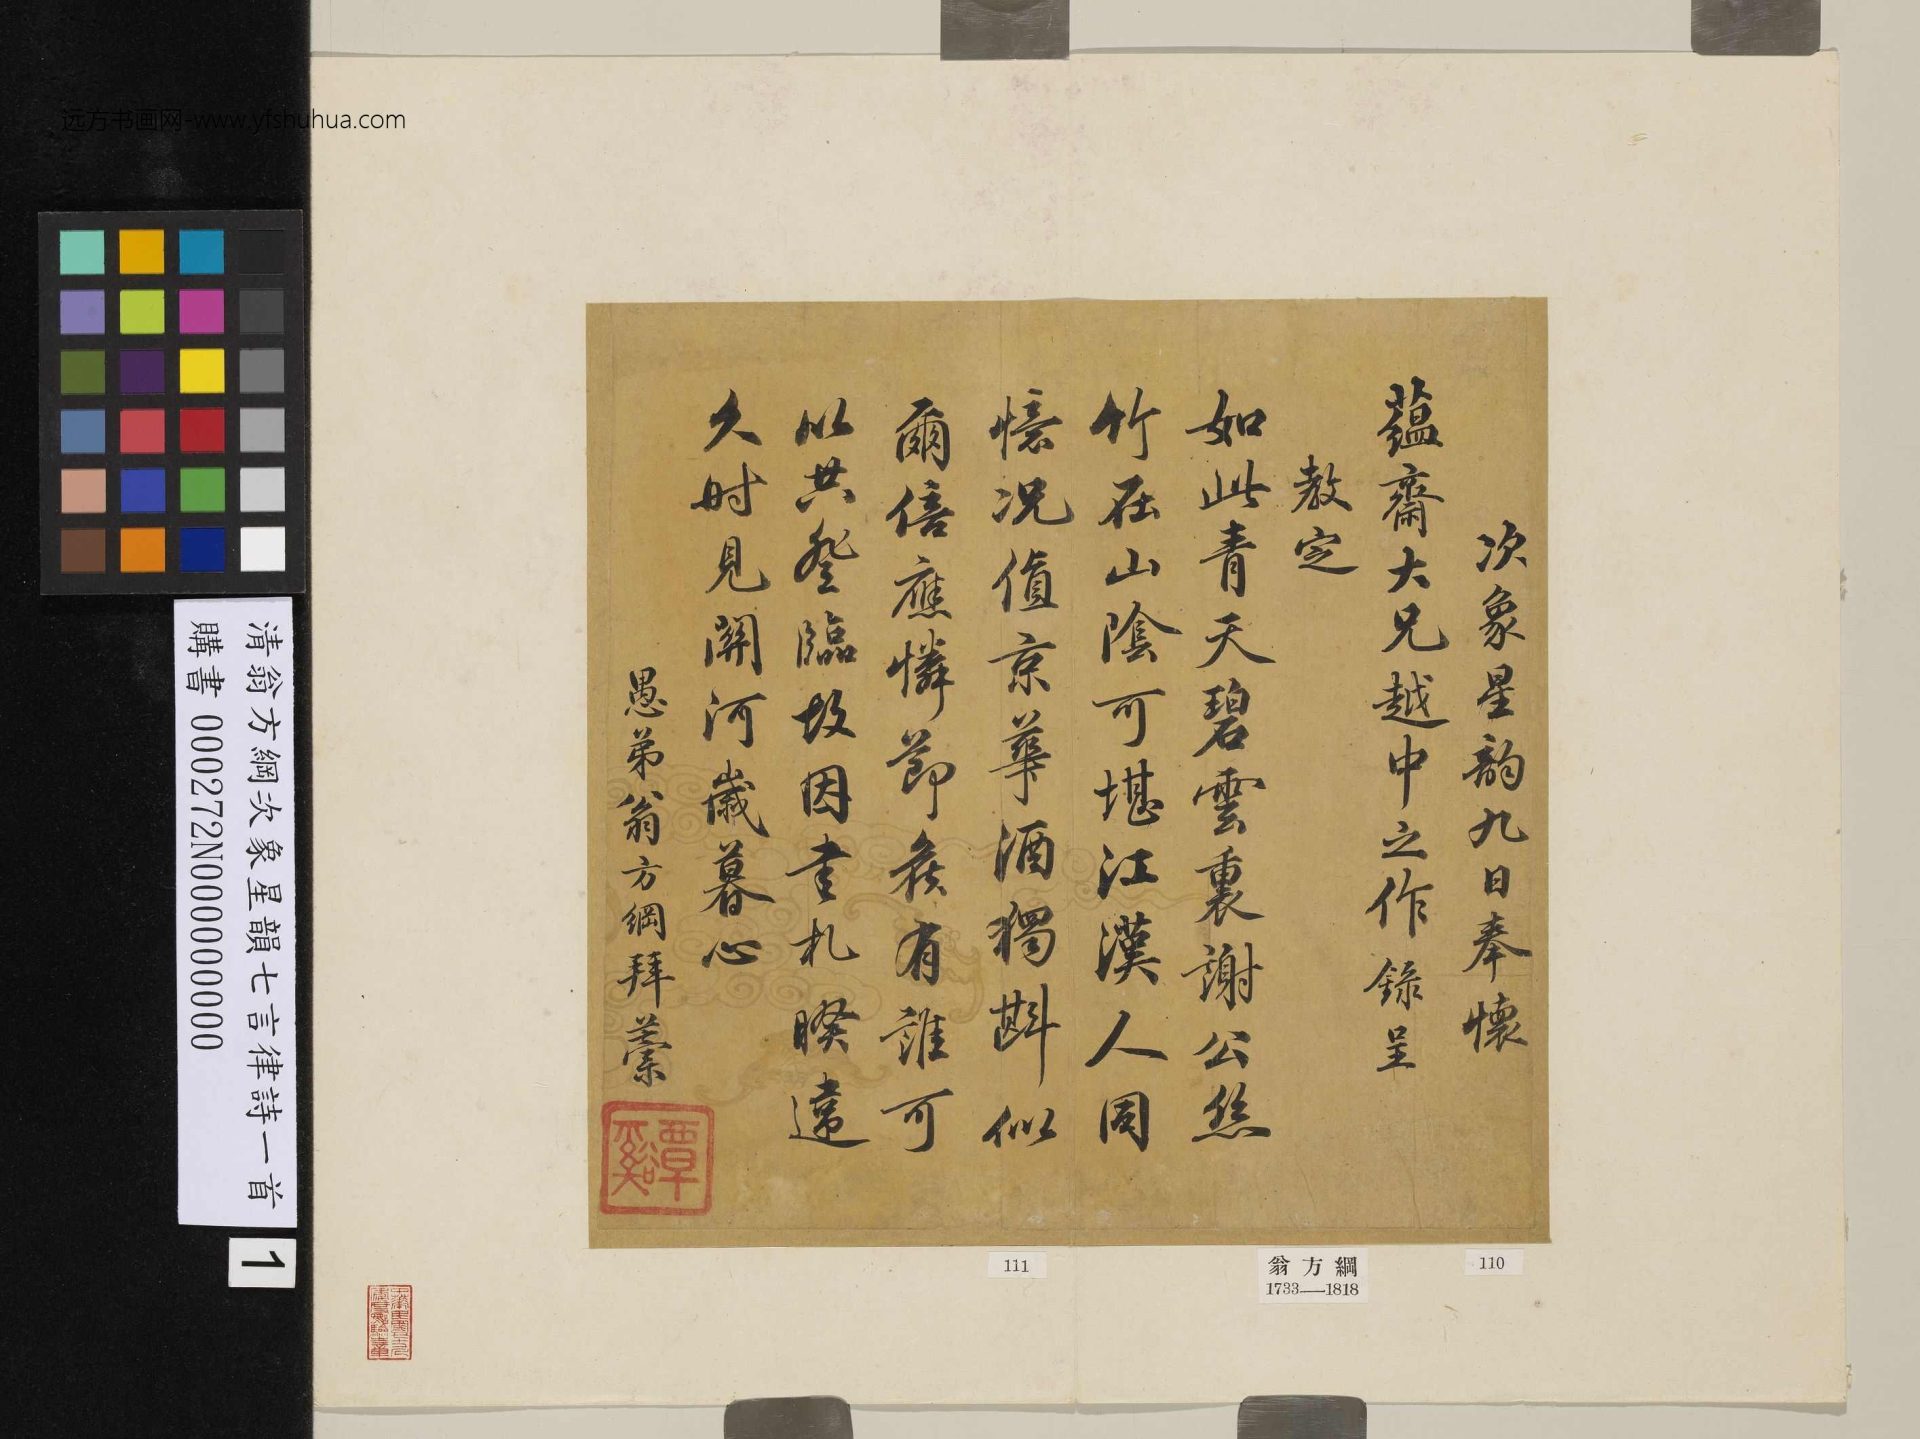 远方书画网-www.yfshuhua.com
清翁方綱次象星韻七言律詩一首
購書 000272N000000000
1
次象星韵九日奉懷
蕴齋大兄越中之作錄呈
教定
如此青天碧雲裏謝公絲
竹在山陰可堪江漢人同
憶况值京華酒獨斟似
爾倍應憐節候有誰可
以共登臨故因書札暌違
久时見關河歲暮心
愚弟翁方綱拜藁
覃谿
111
翁方綱
1733—1818
110